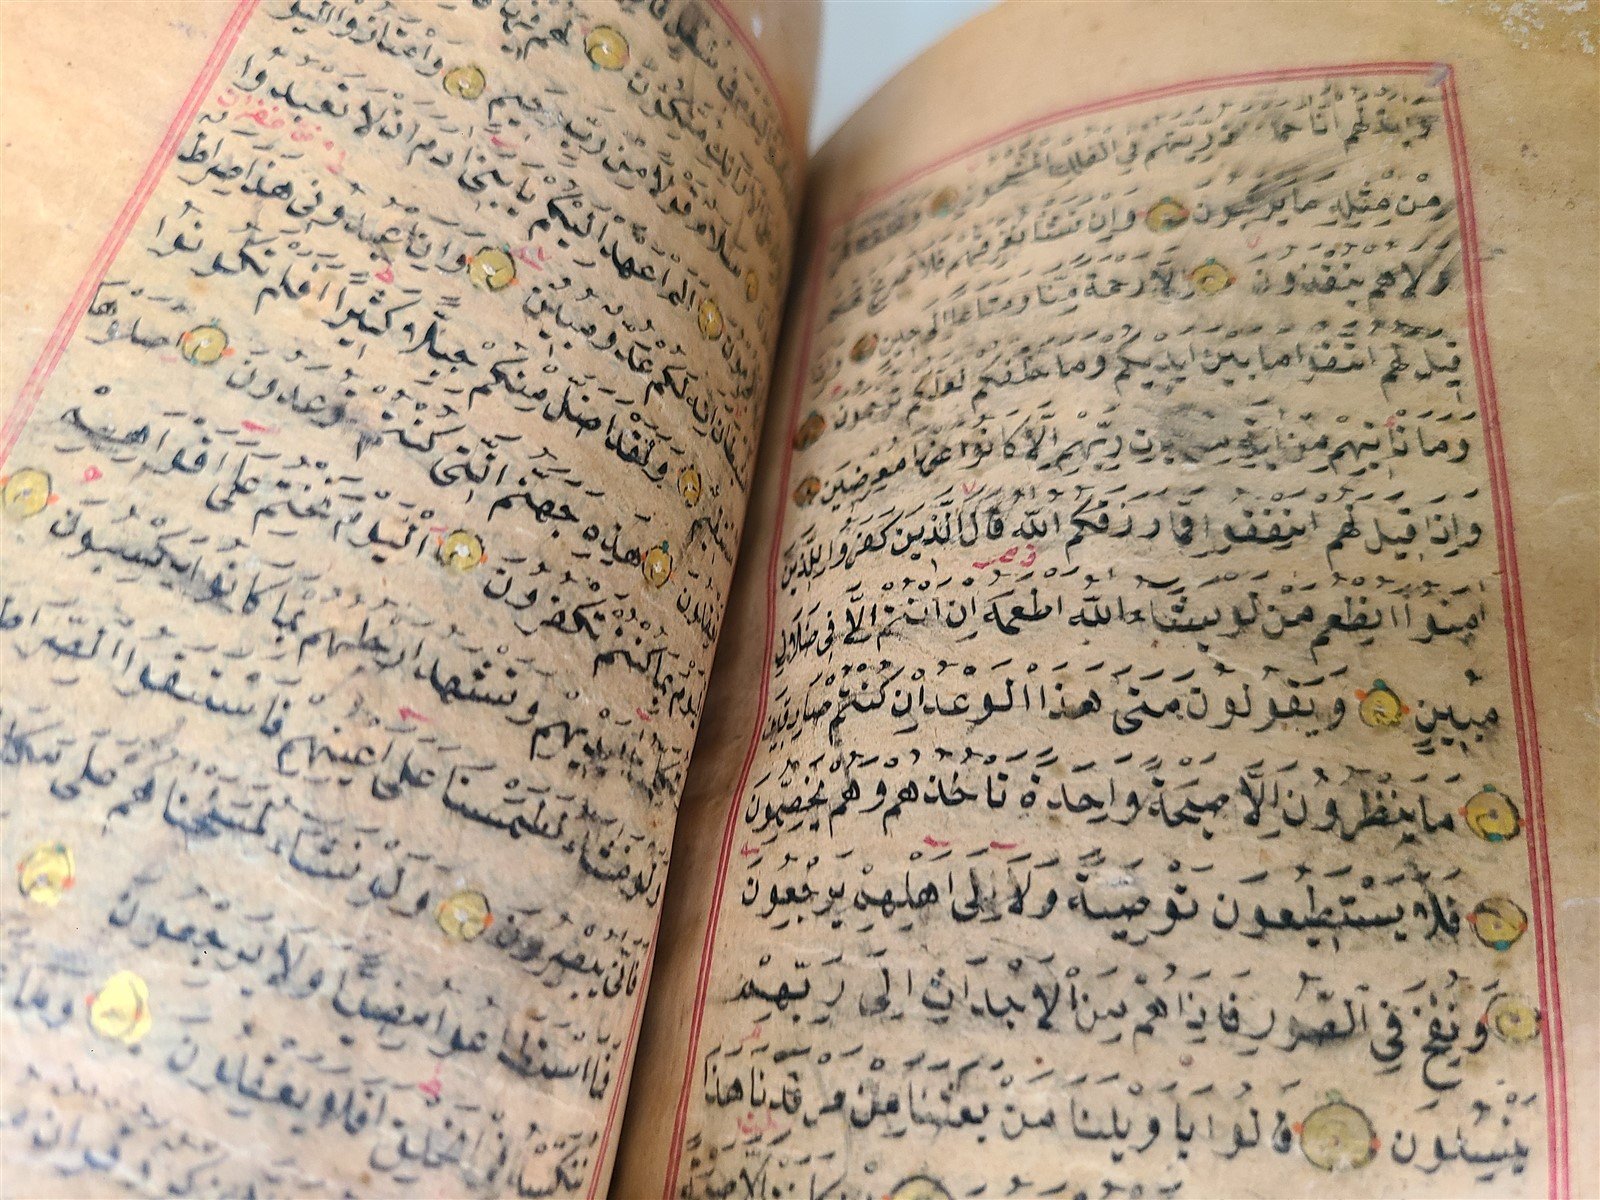 وَاٰيَةٌ لَهُمْ اَنَّا حَمَلْنَا ذُرِّيَّتَهُمْ فِي الْفُلْكِ الْمَشْحُونِ
مِنْ مِثْلِهِ مَا يَرْكَبُونَ وَاِنْ نَشَأْ نُغْرِقْهُمْ فَلَا صَرِيخَ لَهُمْ
وَلَا هُمْ يُنْقَذُونَ اِلَّا رَحْمَةً مِنَّا وَمَتَاعًا اِلٰى حِينٍ وَاِذَا
قِيلَ لَهُمُ اتَّقُوا مَا بَيْنَ اَيْدِيكُمْ وَمَا خَلْفَكُمْ لَعَلَّكُمْ تُرْحَمُونَ
وَمَا تَأْتِيهِمْ مِنْ اٰيَةٍ مِنْ رَبِّهِمْ اِلَّا كَانُوا عَنْهَا مُعْرِضِينَ
وَاِذَا قِيلَ لَهُمْ اَنْفِقُوا مِمَّا رَزَقَكُمُ اللّٰهُ قَالَ الَّذِينَ كَفَرُوا لِلَّذِينَ
اٰمَنُوا اَنُطْعِمُ مَنْ لَوْ يَشَاءُ اللّٰهُ اَطْعَمَهُ اِنْ اَنْتُمْ اِلَّا فِي ضَلَالٍ
مُبِينٍ وَيَقُولُونَ مَتٰى هٰذَا الْوَعْدُ اِنْ كُنْتُمْ صَادِقِينَ
مَا يَنْظُرُونَ اِلَّا صَيْحَةً وَاحِدَةً تَأْخُذُهُمْ وَهُمْ يَخِصِّمُونَ
فَلَا يَسْتَطِيعُونَ تَوْصِيَةً وَلَا اِلٰى اَهْلِهِمْ يَرْجِعُونَ
وَنُفِخَ فِي الصُّورِ فَاِذَا هُمْ مِنَ الْاَجْدَاثِ اِلٰى رَبِّهِمْ
يَنْسِلُونَ قَالُوا يَا وَيْلَنَا مَنْ بَعَثَنَا مِنْ مَرْقَدِنَا هٰذَا
مُتَّكِؤُنَ لَهُمْ فِيهَا
سَلَامٌ قَوْلًا مِنْ رَبٍّ رَحِيمٍ وَامْتَازُوا الْيَوْمَ
اَلَمْ اَعْهَدْ اِلَيْكُمْ يَا بَنِي اٰدَمَ اَنْ لَا تَعْبُدُوا
الشَّيْطَانَ اِنَّهُ لَكُمْ عَدُوٌّ مُبِينٌ وَاَنِ اعْبُدُونِي هٰذَا صِرَاطٌ
مُسْتَقِيمٌ وَلَقَدْ اَضَلَّ مِنْكُمْ جِبِلًّا كَثِيرًا اَفَلَمْ تَكُونُوا
تَعْقِلُونَ هٰذِهِ جَهَنَّمُ الَّتِي كُنْتُمْ تُوعَدُونَ اِصْلَوْهَا
الْيَوْمَ بِمَا كُنْتُمْ تَكْفُرُونَ اَلْيَوْمَ نَخْتِمُ عَلٰى اَفْوَاهِهِمْ
وَتُكَلِّمُنَا اَيْدِيهِمْ وَتَشْهَدُ اَرْجُلُهُمْ بِمَا كَانُوا يَكْسِبُونَ
وَلَوْ نَشَاءُ لَطَمَسْنَا عَلٰى اَعْيُنِهِمْ فَاسْتَبَقُوا الصِّرَاطَ
فَاَنّٰى يُبْصِرُونَ وَلَوْ نَشَاءُ لَمَسَخْنَاهُمْ عَلٰى مَكَا
فَمَا اسْتَطَاعُوا مُضِيًّا وَلَا يَرْجِعُونَ
نُنَكِّسْهُ فِي الْخَلْقِ اَفَلَا يَعْقِلُونَ وَمَا